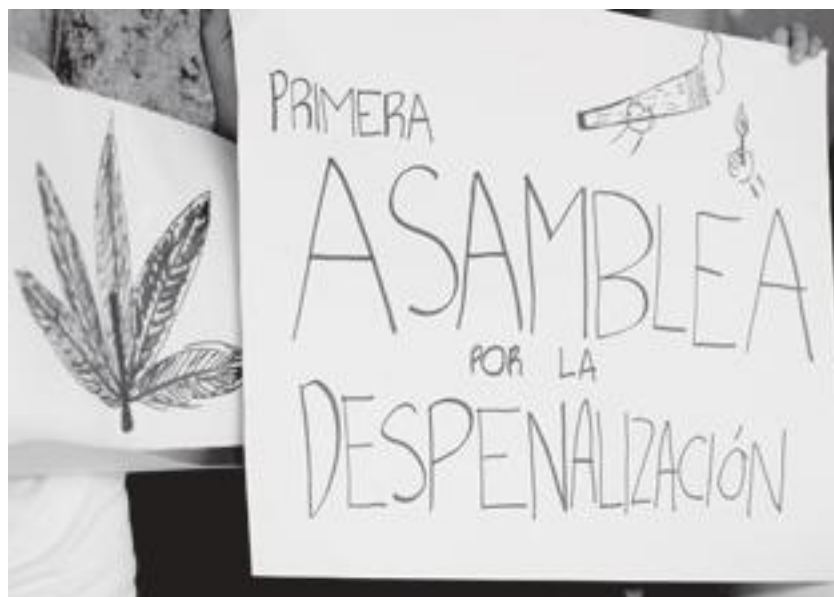 PRIMERA
ASAMBLEA
POR LA
DESPENALIZACIÓN